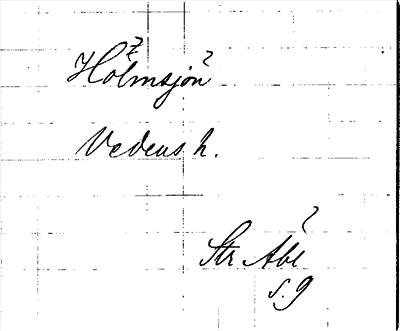 Holmsjön
Vedens h.
Str Åbe
s. 9